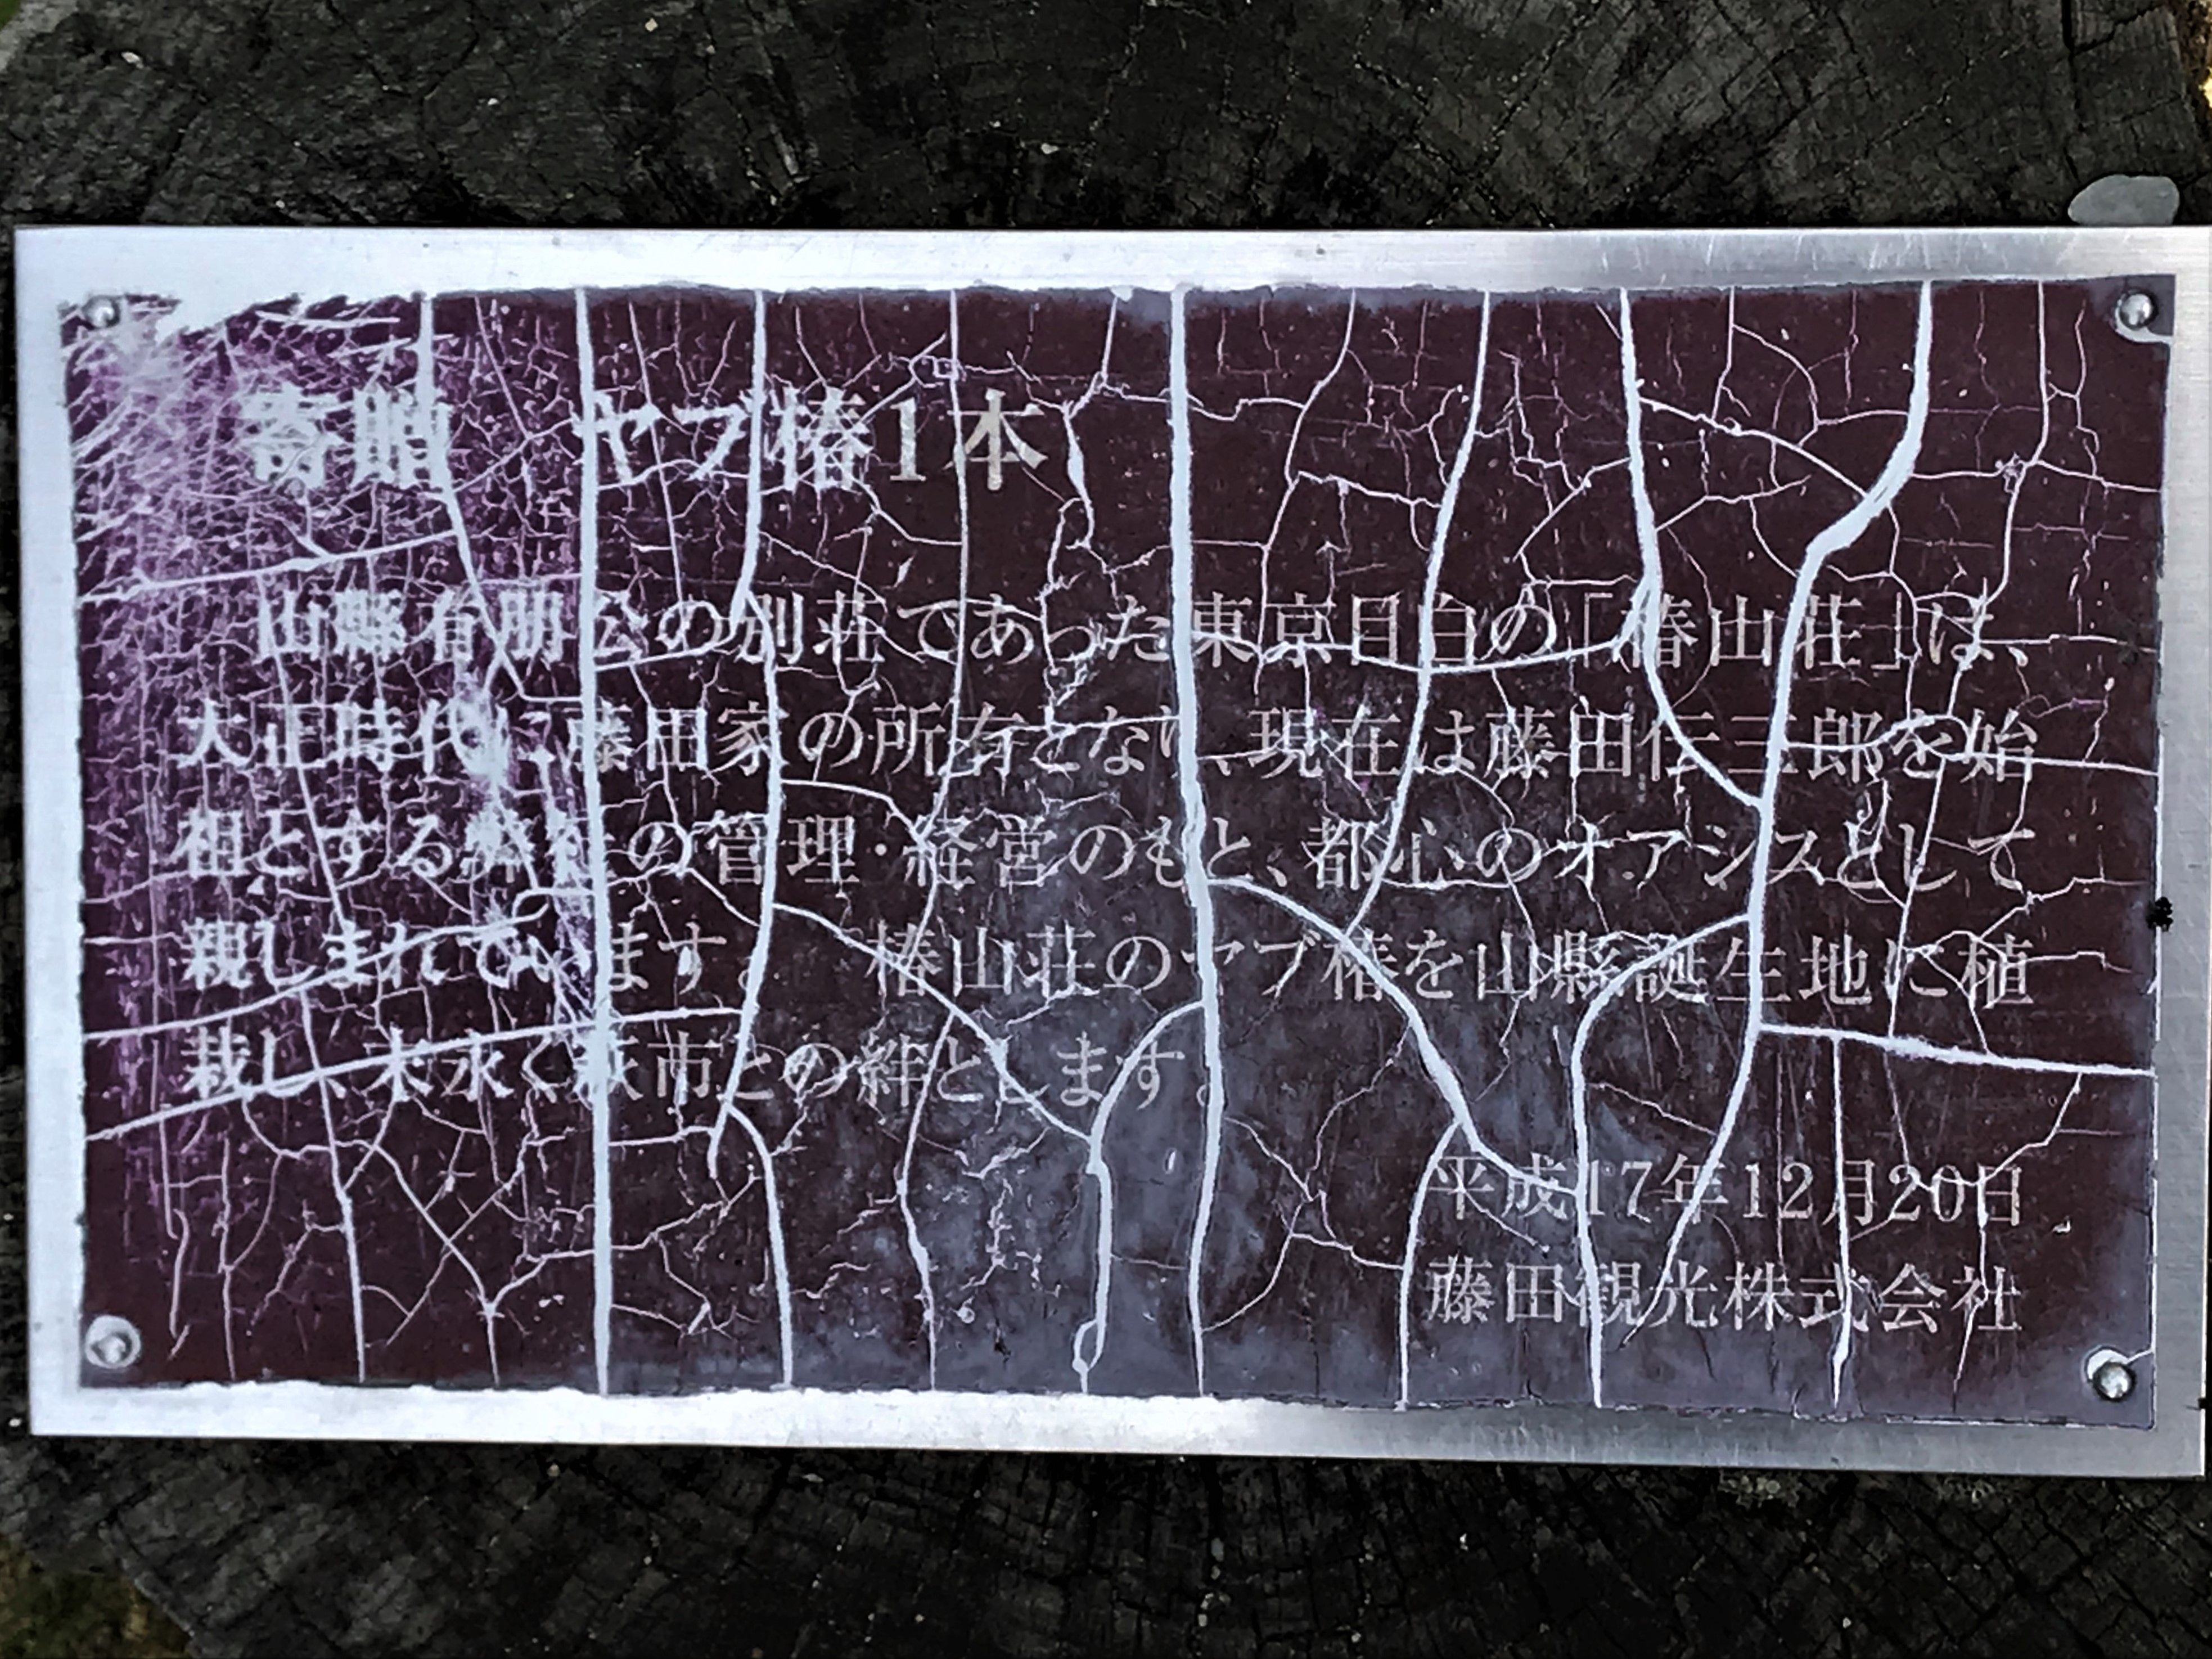 寄贈　ヤブ椿1本
山縣有朋公の別荘であった東京目白の「椿山荘」は、
大正時代に藤田家の所有となり、現在は藤田伝三郎を始
祖とする弊社の管理・経営のもと、都心のオアシスとして
親しまれています。　椿山荘のヤブ椿を山縣誕生地に植
栽し、末永く萩市との絆とします。
平成17年12月20日
藤田観光株式会社